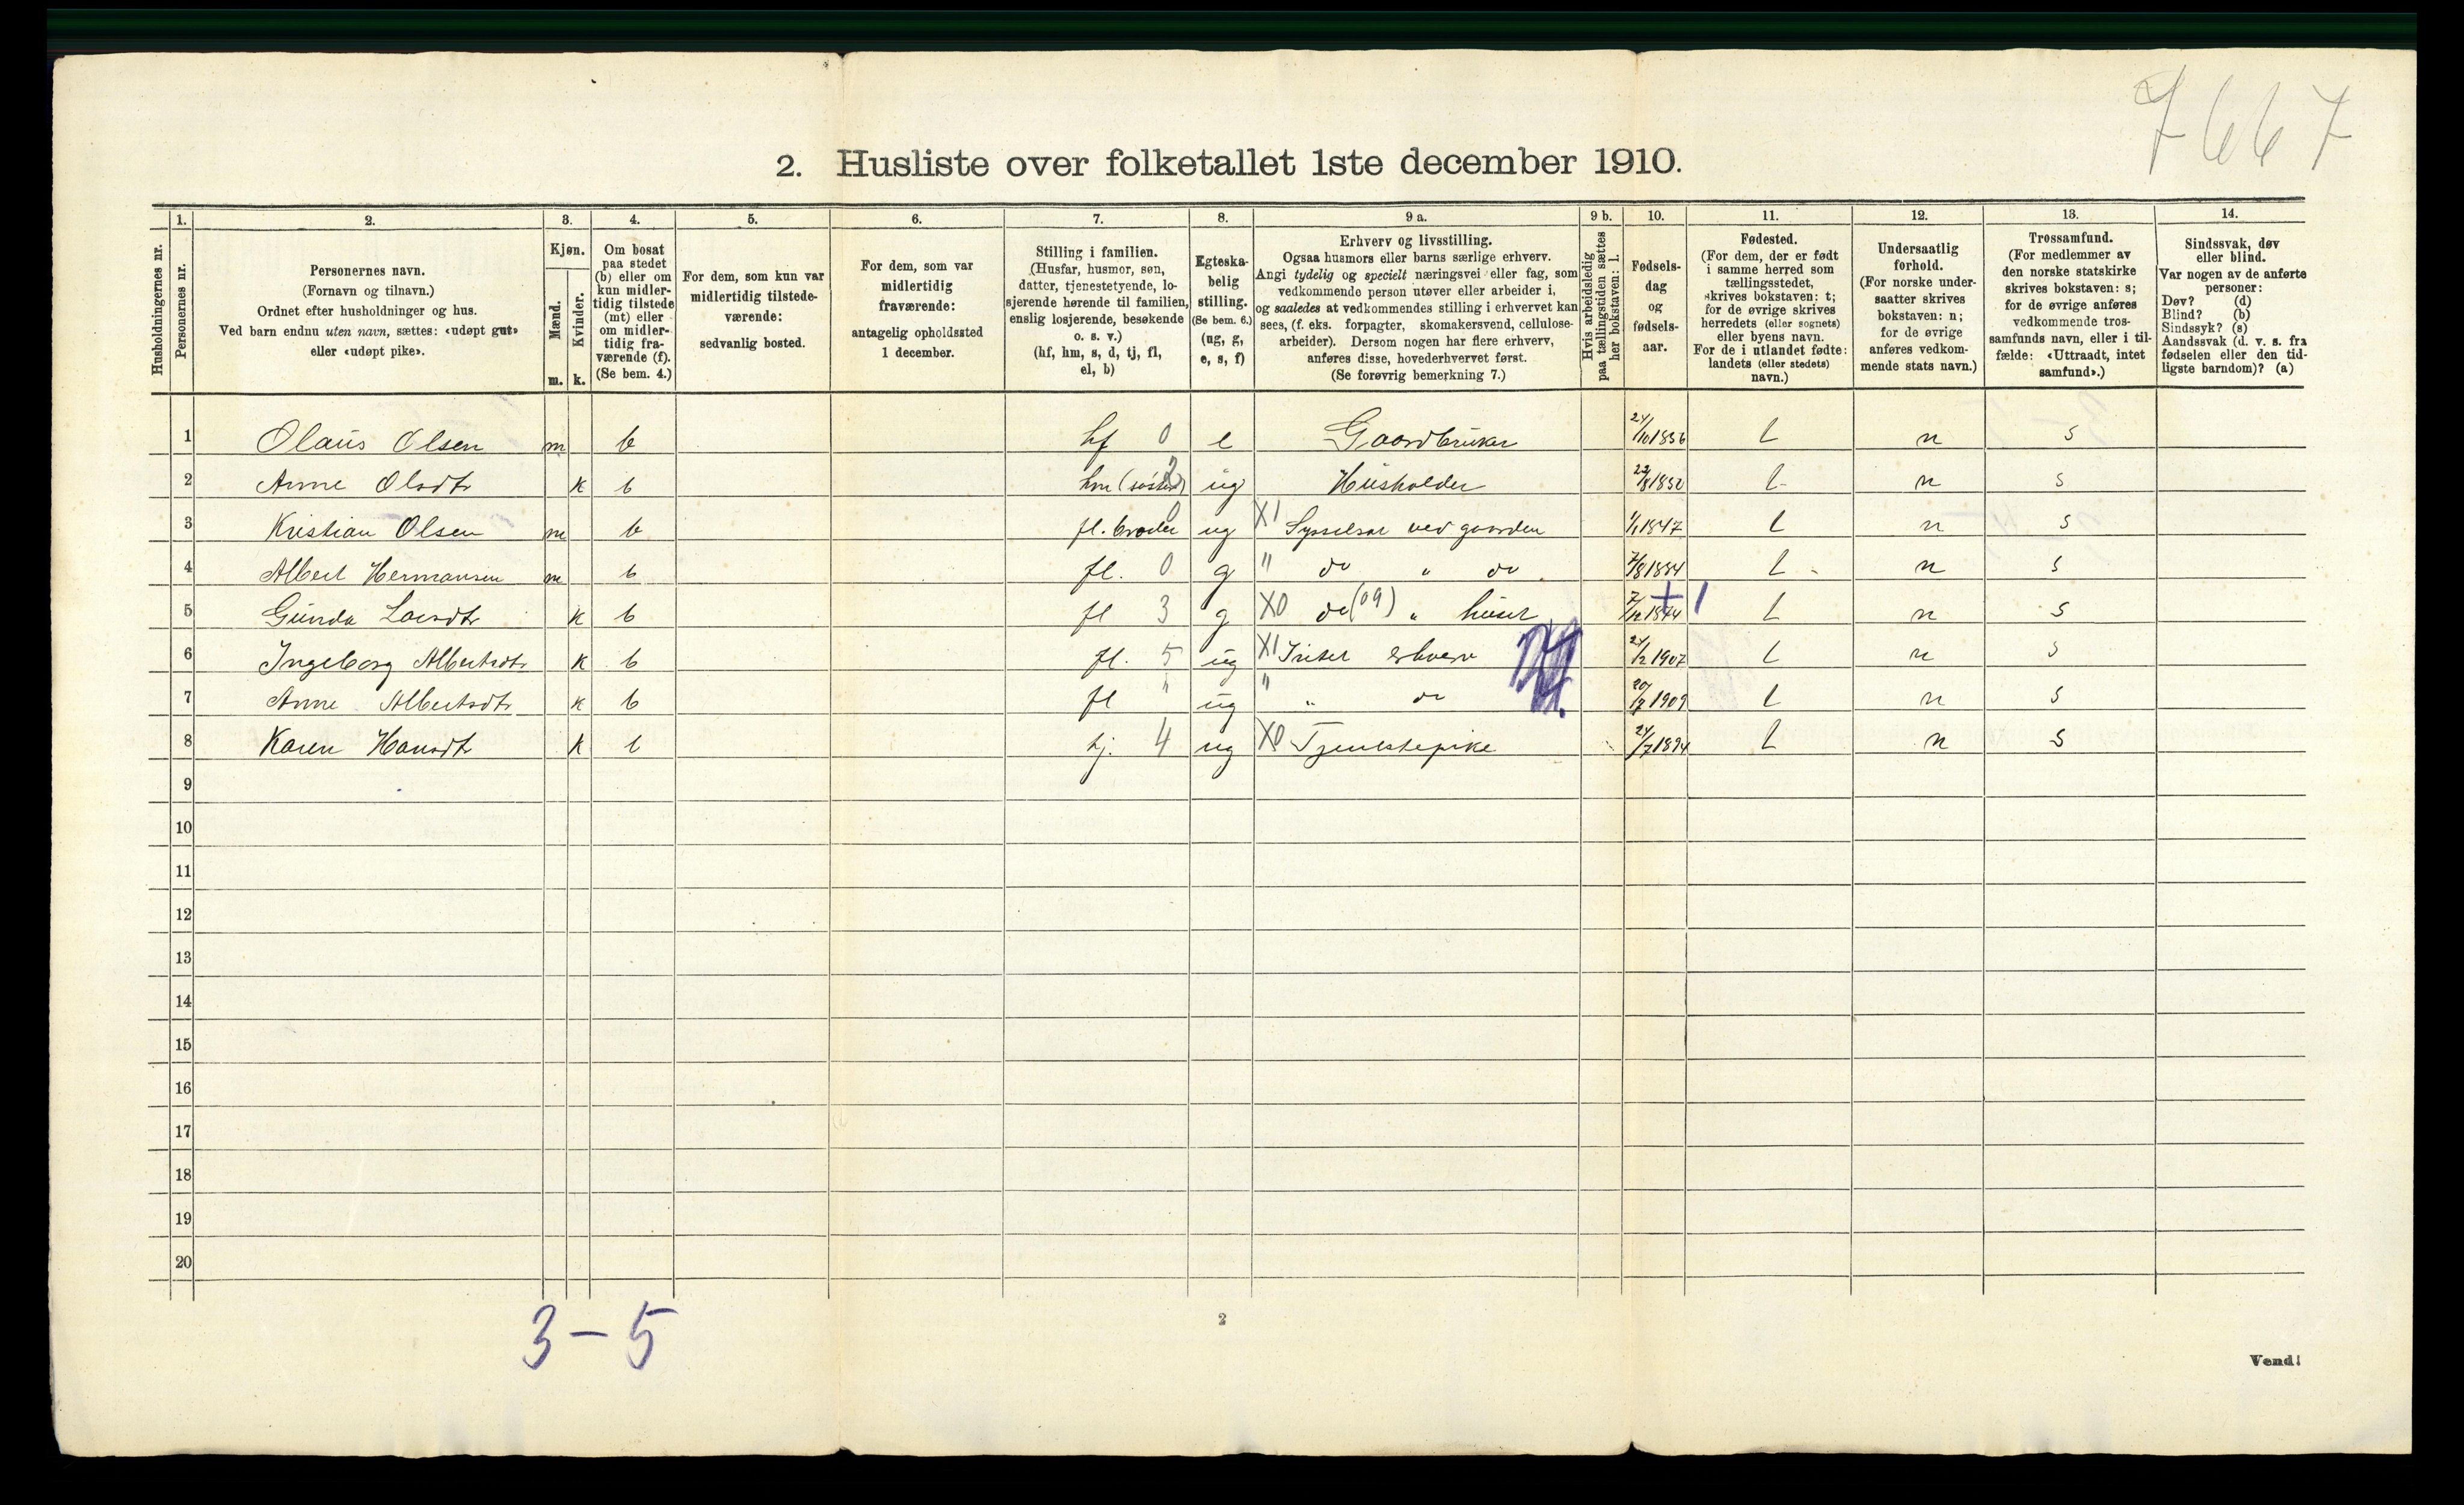 7667
2. Husliste over folketallet 1ste december 1910.
Husholdningernes nr.
1.
Personernes nr.
2.
Personernes navn.
(Fornavn og tilnavn.)
Ordnet efter husholdninger og hus.
Ved barn endnu uten navn, sættes: «udøpt gut»
eller «udøpt pike».
3.
Kjøn.
Mænd.
Kvinder.
m. k.
4.
Om bosat
paa stedet
(b) eller om
kun midler-
tidig tilstede
(mt) eller
om midler-
tidig fra-
værende (f).
(Se bem. 4.)
5.
For dem, som kun var
midlertidig tilstede-
værende:
sedvanlig bosted.
6.
For dem, som var
midlertidig
fraværende:
antagelig opholdssted
1 december.
7.
Stilling i familien.
(Husfar, husmor, søn,
datter, tjenestetyende, lo-
sjerende hørende til familien,
enslig losjerende, besøkende
o. s. v.)
(hf, hm, s, d, tj, fl,
el, b)
8.
Egteska-
belig
stilling.
(Se bem. 6.)
(ug, g,
e, s, f)
9 a.
Erhverv og livsstilling.
Ogsaa husmors eller barns særlige erhverv.
Angi tydelig og specielt næringsvei eller fag, som
vedkommende person utøver eller arbeider i,
og saaledes at vedkommendes stilling i erhvervet kan
sees, (f. eks. forpagter, skomakersvend, cellulose-
arbeider). Dersom nogen har flere erhverv,
anføres disse, hovederhvervet først.
(Se forøvrig bemerkning 7.)
9 b.
Hvis arbeidsledig
paa tællingstiden sættes
her bokstaven: l.
10.
Fødsels-
dag
og
fødsels-
aar.
11.
Fødested.
(For dem, der er født
i samme herred som
tællingsstedet,
skrives bokstaven: t;
for de øvrige skrives
herredets (eller sognets)
eller byens navn.
For de i utlandet fødte:
landets (eller stedets)
navn.)
12.
Undersaatlig
forhold.
(For norske under-
saatter skrives
bokstaven: n;
for de øvrige
anføres vedkom-
mende stats navn.)
13.
Trossamfund.
(For medlemmer av
den norske statskirke
skrives bokstaven: s;
for de øvrige anføres
vedkommende tros-
samfunds navn, eller i til-
fælde: «Uttraadt, intet
samfund».)
14.
Sindssvak, døv
eller blind.
Var nogen av de anførte
personer:
Døv? (d)
Blind? (b)
Sindssyk? (s)
Aandssvak (d. v. s. fra
fødselen eller den tid-
ligste barndom)? (a)
1 Olaus Olsen m b hf 0 e Gaardbruker 24/10 1856 t n s
2 Anne Olsdtr k b hm (søster) 2 ug Husholder 1852 t n s
3 Kristian Olsen m b fl. broder 0 ug X1 Sysselsat ved gaarden 1/1 1847 t n s
4 Albert Hermansen m b fl. 0 g " do " do 7/8 1884 t n s
5 Gunda Larsdtr k b fl 3 g X0 do (09) " huset t n s
6 Ingeborg Albertsdtr k b fl. 5 ug X1 Intet erhverv 24/2 1907 t n s
7 Anne Albertsdtr k b fl " ug " " do 1909 t n s
8 Karen Hansdtr k b tj. 4 ug X0 Tjenestepike 24/7 1894 t n s
9
10
11
12
13
14
15
16
17
18
19
20
3 - 5
2
Vend!